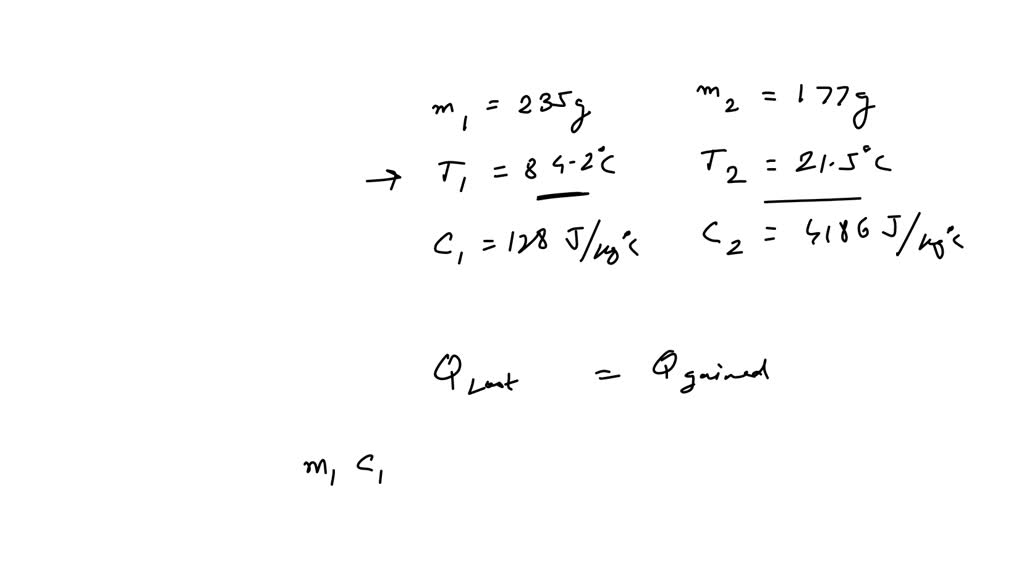 m₁ = 235g m₂ = 177g
→ T₁ = 84.2°C T₂ = 21.5°C
C₁ = 128 J/kg°C C₂ = 4186 J/kg°C
Q Lost = Q gained
m₁ C₁